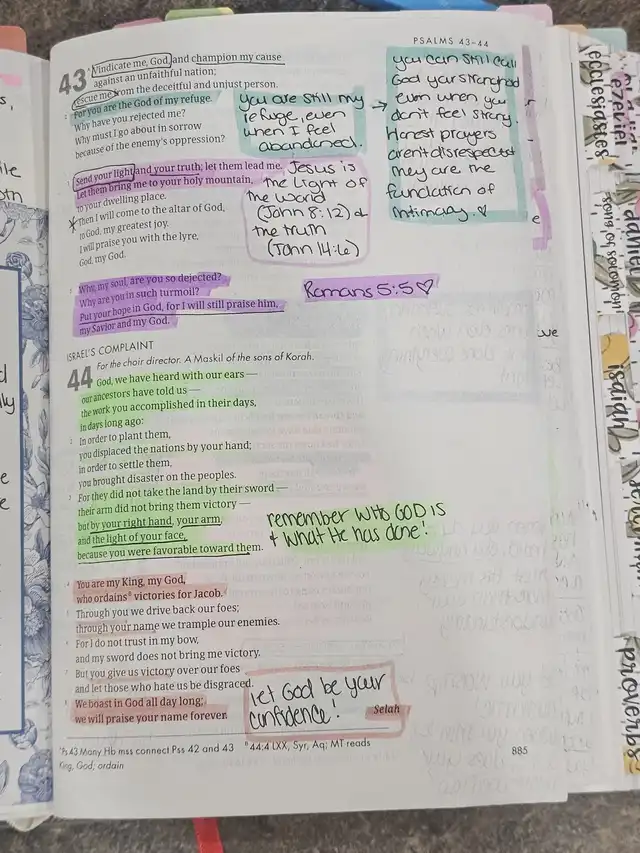 PSALMS 43–44
43 Vindicate me, God, and champion my cause
against an unfaithful nation;
rescue me from the deceitful and unjust person.
2 For you are the God of my refuge.
Why have you rejected me?
Why must I go about in sorrow
because of the enemy's oppression?
you are still my
refuge, even
when I feel
abandoned.
→ you can still call
God your stronghold
even when you
don't feel strong.
Honest prayers
aren't disrespect
they are the
fundation of
intimacy. ♡
3 Send your light and your truth; let them lead me.
Let them bring me to your holy mountain,
to your dwelling place.
4 Then I will come to the altar of God,
to God, my greatest joy.
I will praise you with the lyre,
God, my God.
Jesus is
the Light of
the world
(John 8:12) &
the truth
(John 14:6)
5 Why, my soul, are you so dejected?
Why are you in such turmoil?
Put your hope in God, for I will still praise him,
my Savior and my God.
Romans 5:5 ♡
ISRAEL'S COMPLAINT
For the choir director. A Maskil of the sons of Korah.
44 God, we have heard with our ears —
our ancestors have told us —
the work you accomplished in their days,
in days long ago:
2 In order to plant them,
you displaced the nations by your hand;
in order to settle them,
you brought disaster on the peoples.
3 For they did not take the land by their sword —
their arm did not bring them victory —
but by your right hand, your arm,
and the light of your face,
because you were favorable toward them.
remember who GOD is
& what He has done!
4 You are my King, my God,
who ordains victories for Jacob.
5 Through you we drive back our foes;
through your name we trample our enemies.
6 For I do not trust in my bow,
and my sword does not bring me victory.
7 But you give us victory over our foes
and let those who hate us be disgraced.
8 We boast in God all day long;
we will praise your name forever.
Selah
let God be your
confidence!
Ps 43 Many Hb mss connect Pss 42 and 43
44:4 LXX, Syr, Aq; MT reads
King, God; ordain
885
ecclesiastes
song of solomon
isaiah
ezekiel
daniel
proverbs